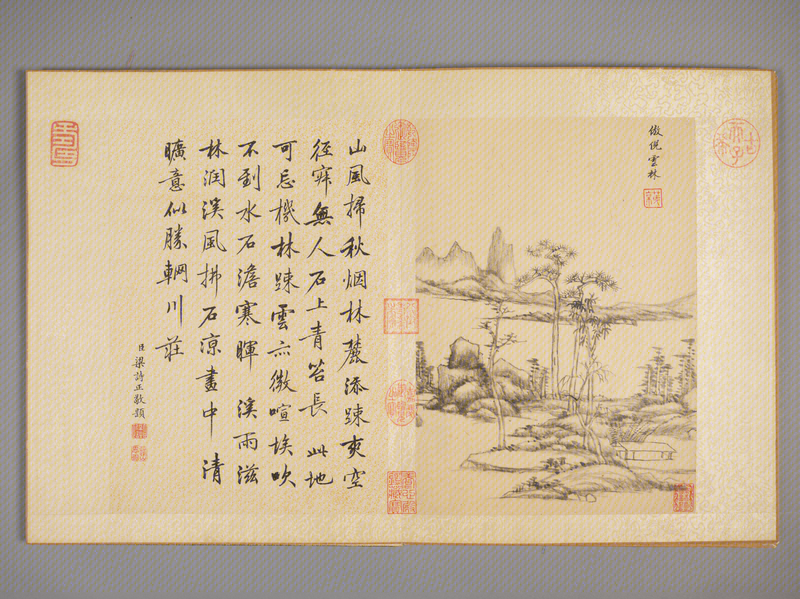 倣倪雲林
山風掃秋烟林麓添踈爽空
径寂無人石上青苔長 此地
可忘機林踈雲亦微喧埃吹
不到水石澹寒暉 溪雨滋
林润溪風拂石凉畫中清
曠意似勝輞川莊
臣梁詩正敬題